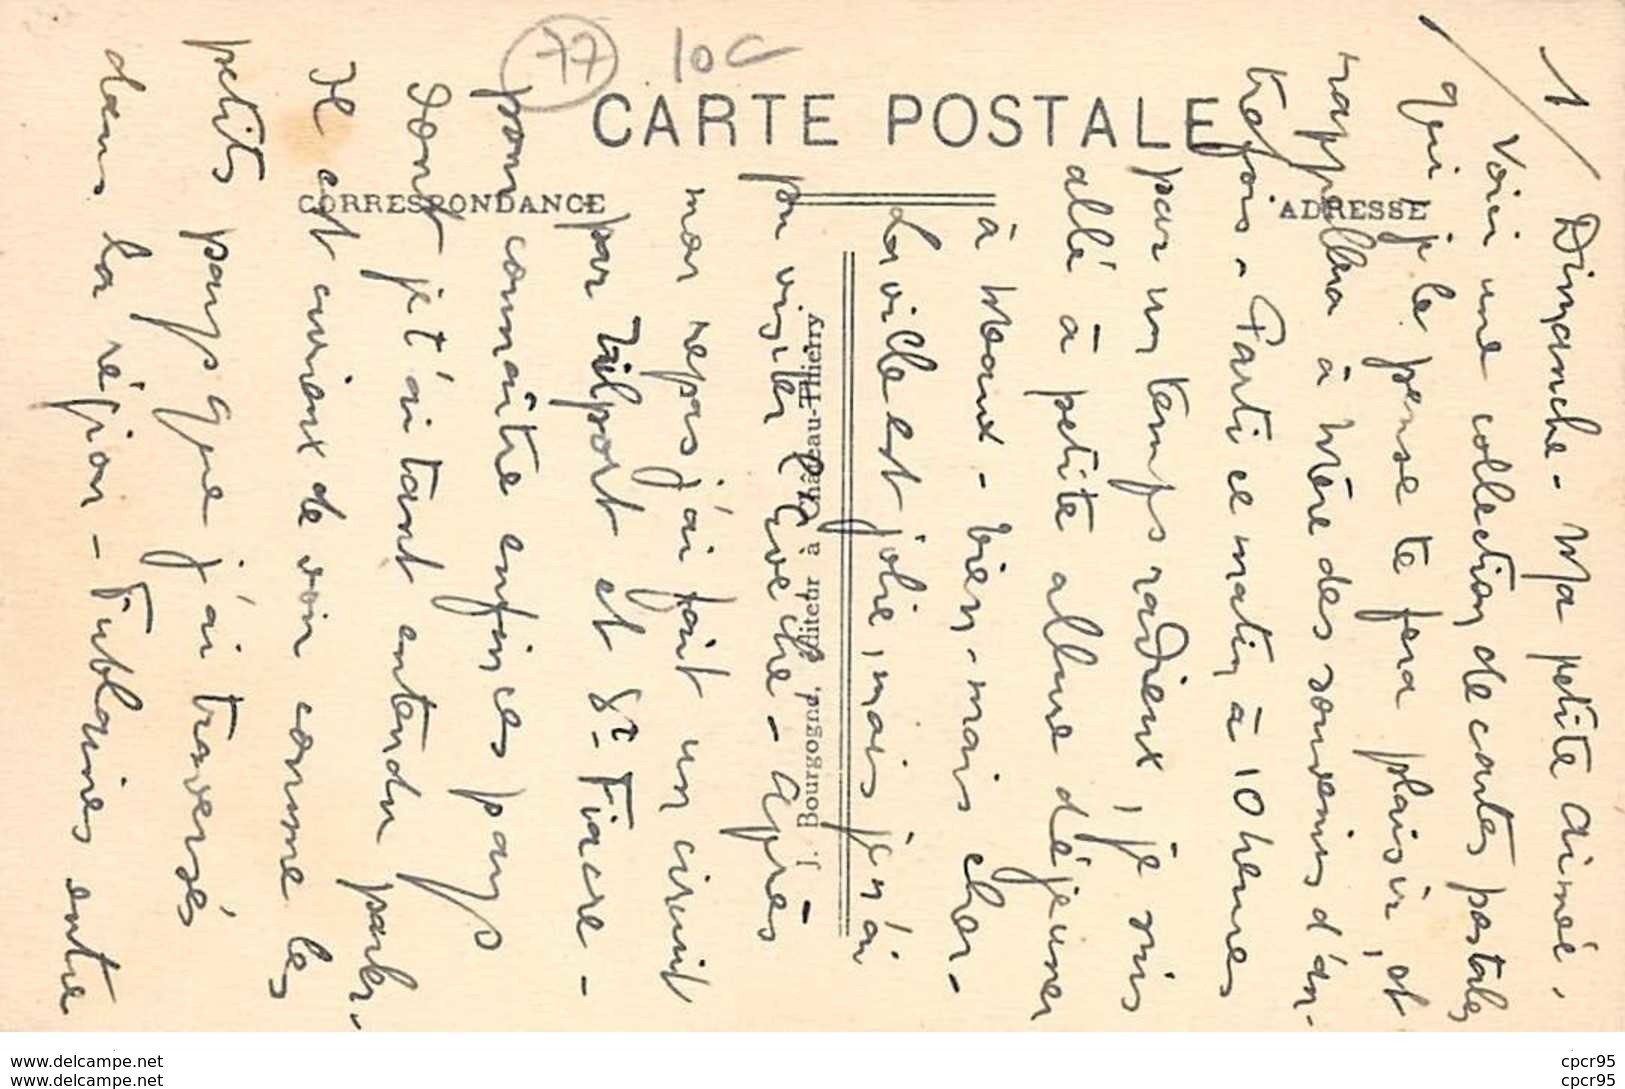 77
10c
CARTE POSTALE
CORRESPONDANCE
ADRESSE
J. Bourgogne, Éditeur à Château-Thierry
1
Dimanche - Ma petite aimée.
Voici une collection de cartes postales
qui je le pense te fera plaisir, et
rappellera à Mère des souvenirs d'an-
trefois - Parti ce matin à 10 heures
par un temps radieux, je suis
allé à petite allure déjeuner
à Meaux - bien - mais cher -
La ville est jolie, mais je n'ai
pu visiter l'évêché - après
mon repas j'ai fait un circuit
par Trilport et St- Fiacre -
pour connaître enfin ces pays
dont je t'ai tant entendu parler -
Il est curieux de voir comme les
petits pays que j'ai traversés
dans la région - Fublaines entre
www.delcampe.net
www.delcampe.net
cpcr95
cpcr95